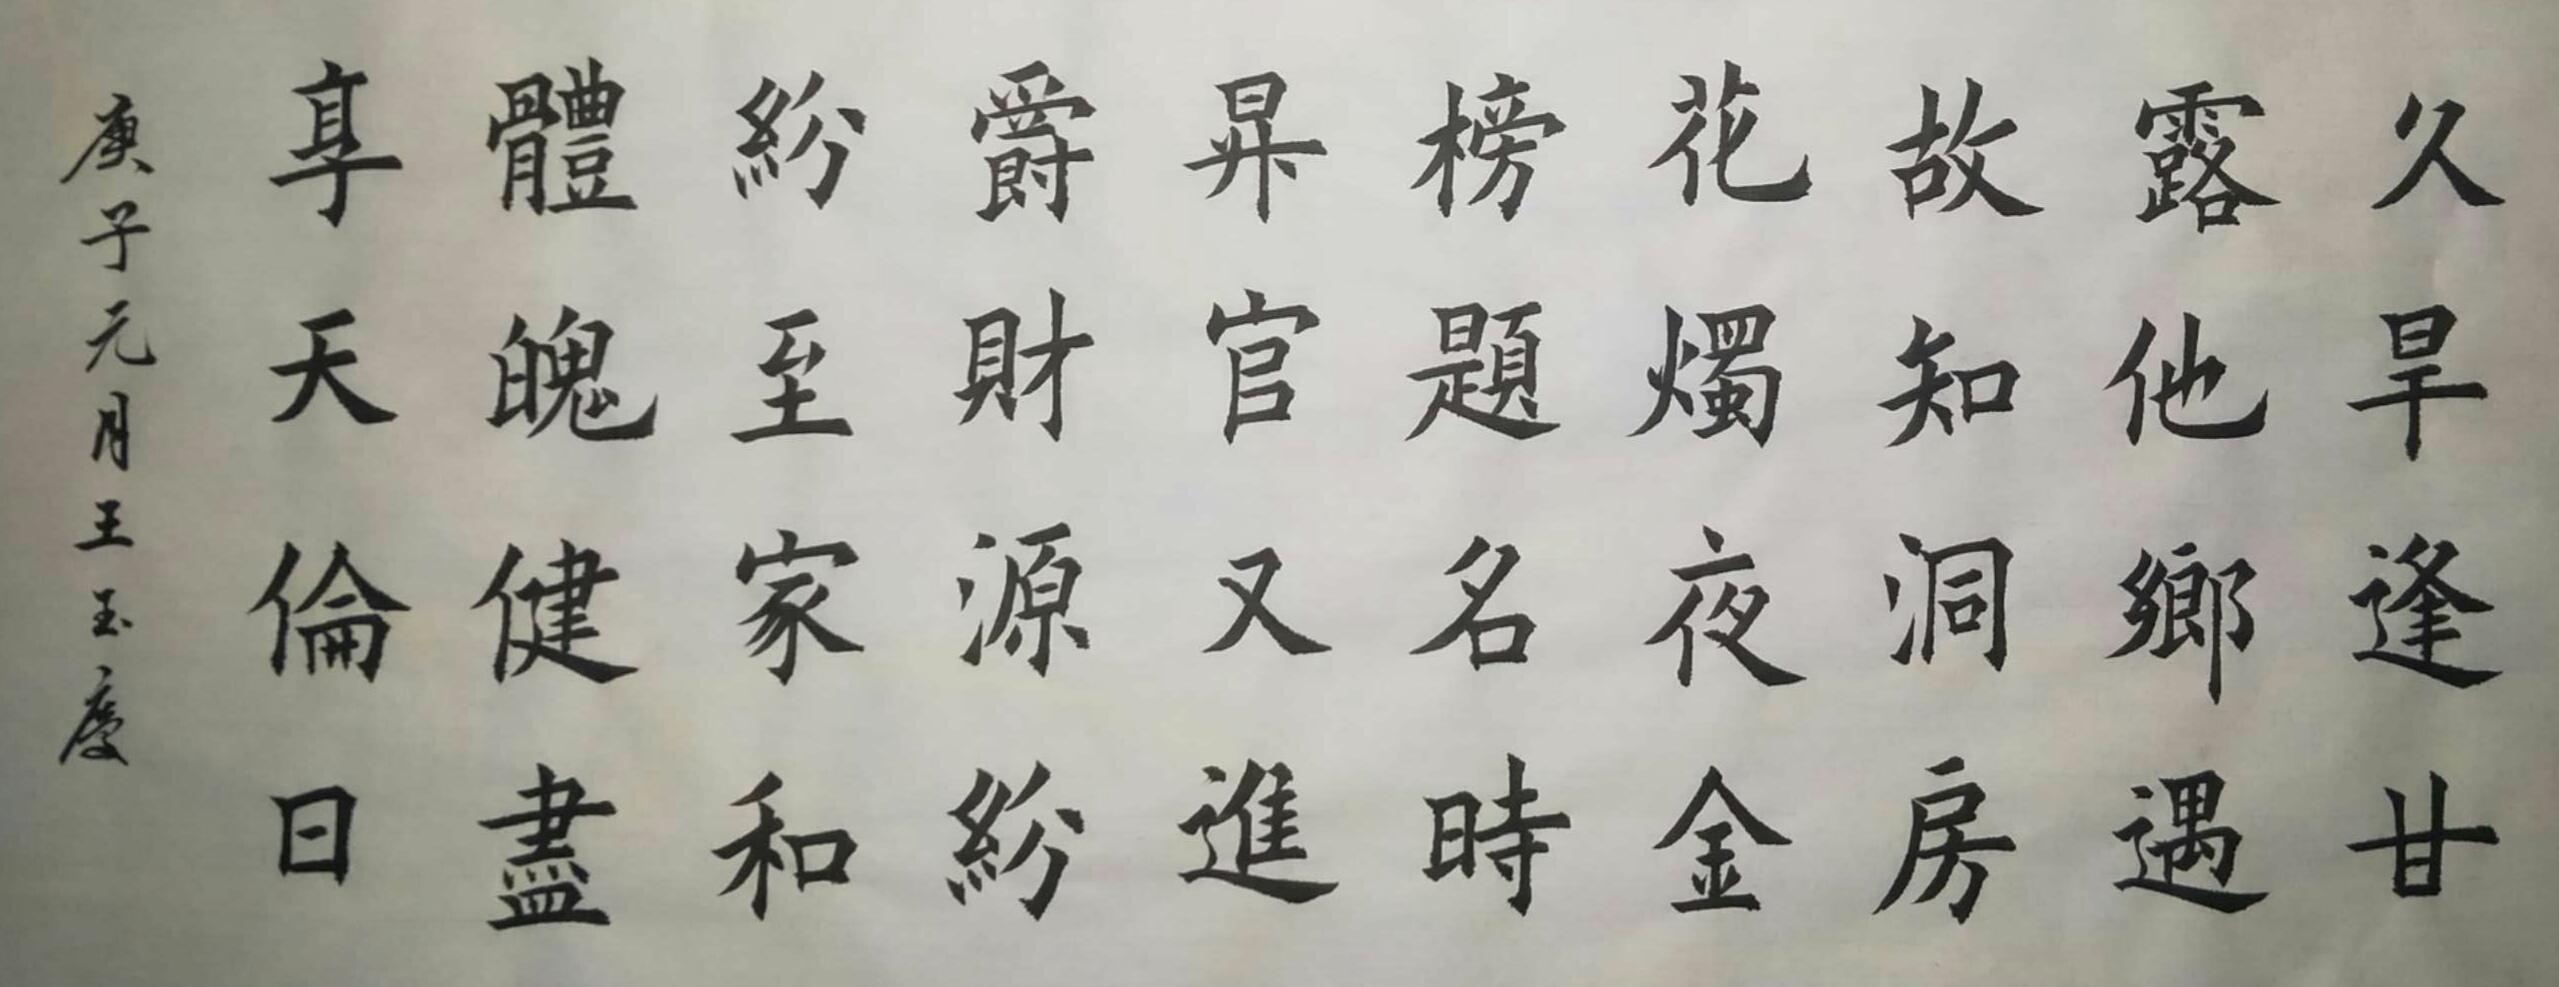 久旱逢甘
露他鄉遇
故知洞房
花燭夜金
榜題名時
昇官又進
爵財源紛
紛至家和
體魄健盡
享天倫日
庚子元月王玉慶